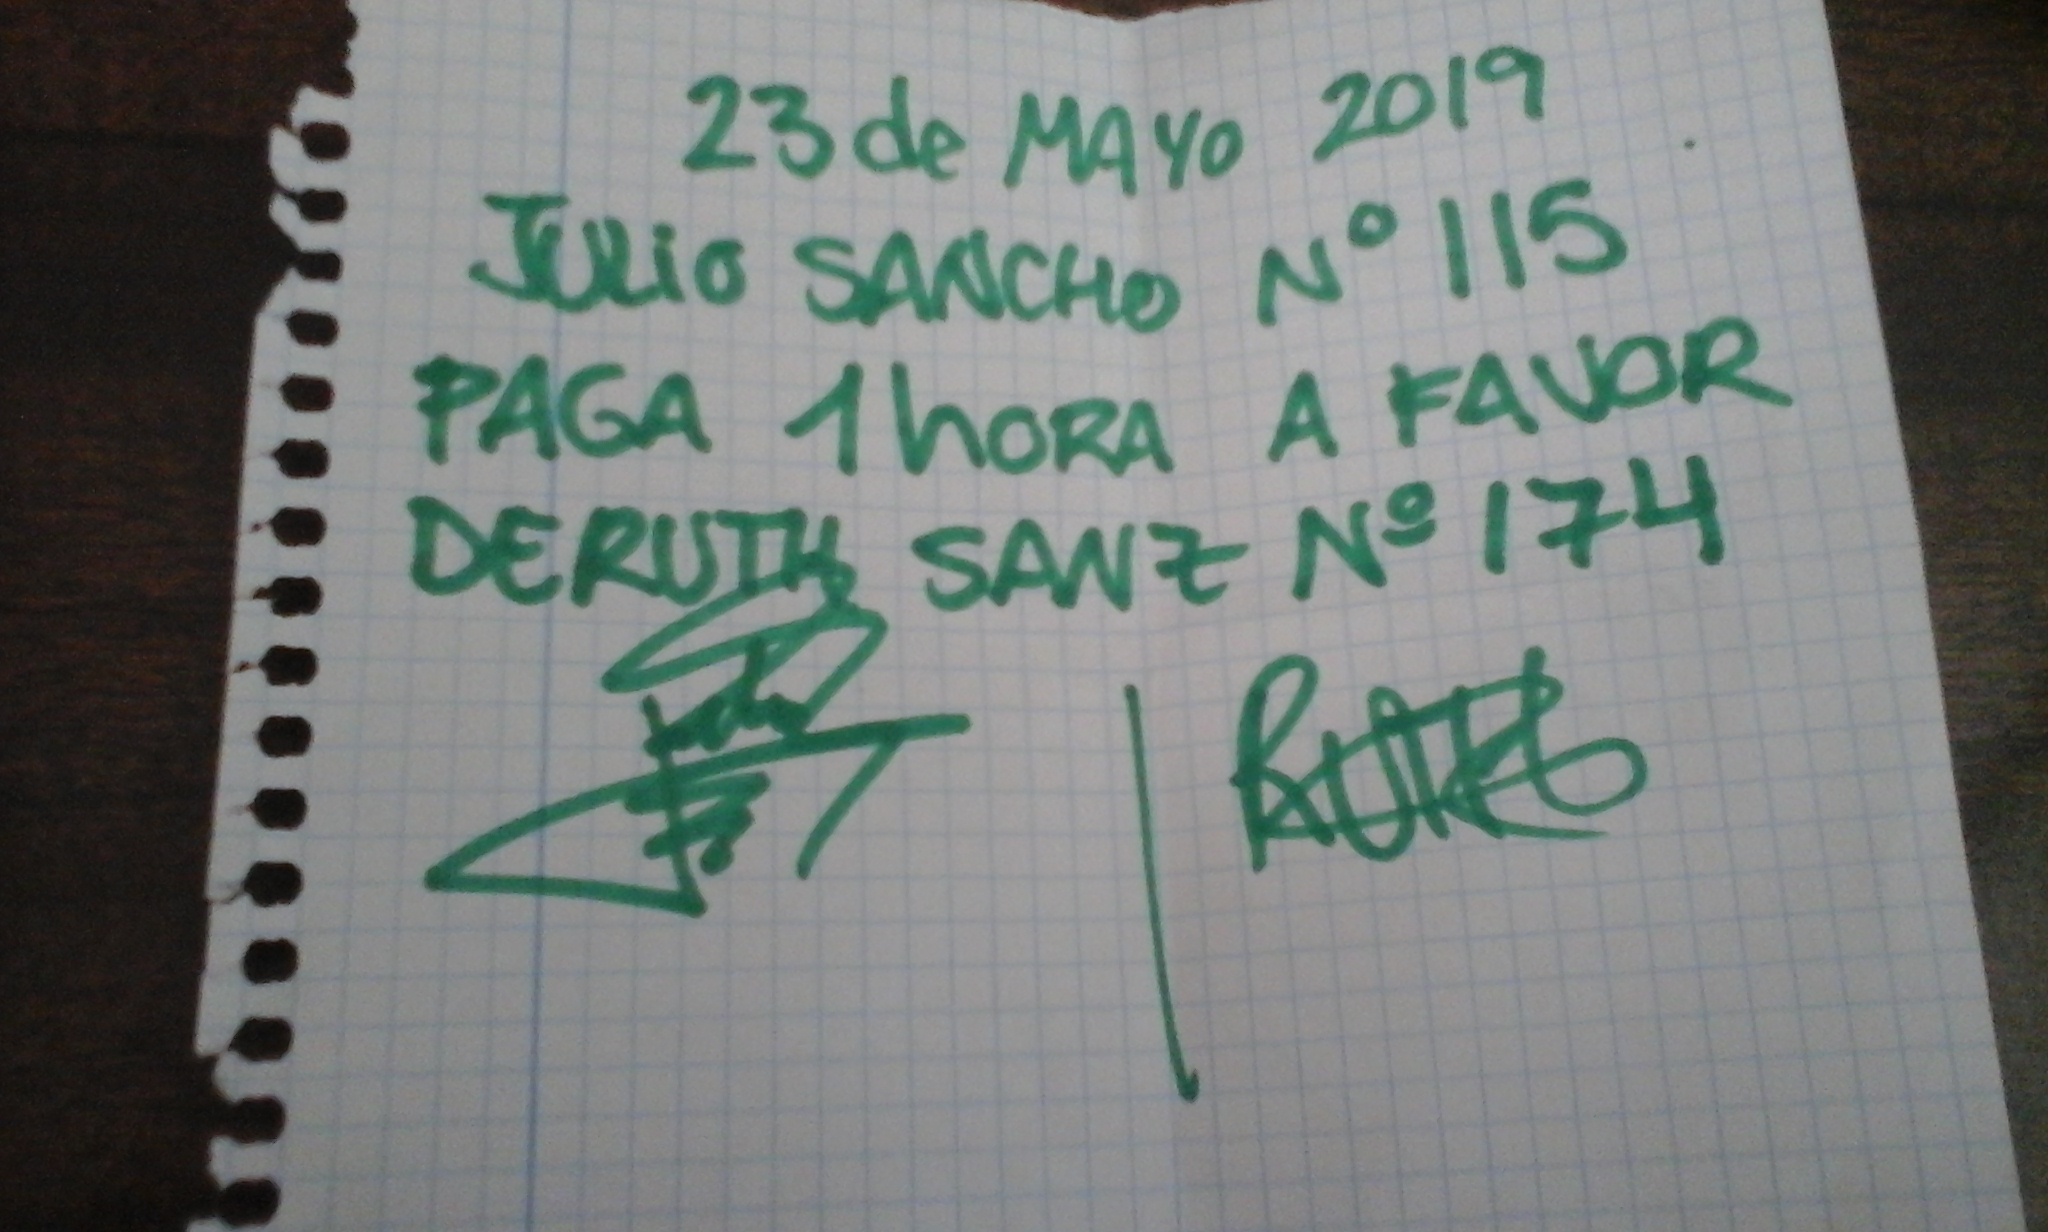 23 de MAYO 2019
JULIO SANCHO Nº 115
PAGA 1 hORA A FAVOR
DE RUTH SANZ Nº 174
RUTH